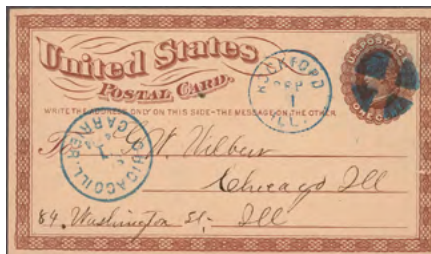 United States
POSTAL CARD.
WRITE THE ADDRESS ONLY ON THIS SIDE - THE MESSAGE ON THE OTHER
ROCKFORD
1
ILL.
U.S. POSTAGE
ONE CENT
CHICAGO ILL.
CARRIER
1
To G. W. Wilbur
Chicago Ill
84. Washington St. Ill